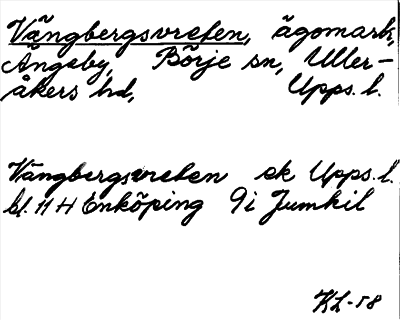 Vängbergsvreten, ägomark,
Ängeby, Börje sn, Uller-
åkers hd, Upps. l.
Vängbergsvreten ek Upps. l.
bl. 11 H Enköping 9i Jumkil
KL-58